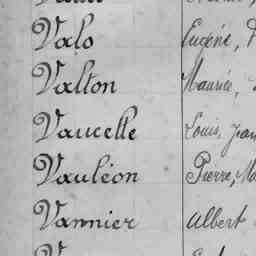 Valo Eugène,
Valton Maurice,
Vaucelle Louis, Jean
Vauléon Pierre, Ma
Vannier Albert